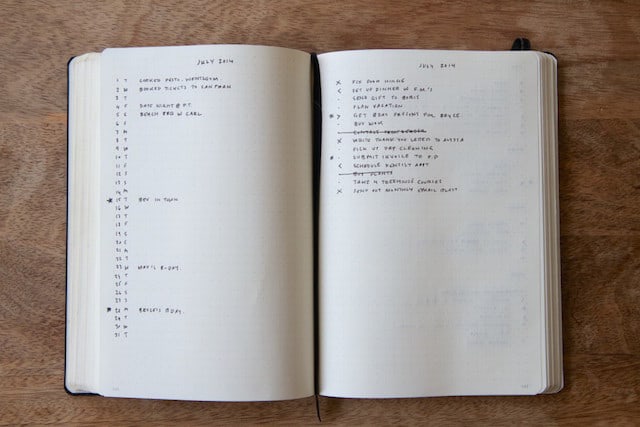 JULY 2014
1 T COOKED PESTO. WENT GYM
2 W BOOKED TICKETS TO SAN FRAN
3 T
4 F DATE NIGHT @ FT.
5 S BEACH BBQ W CARL
6 S
7 M
8 T
9 W
10 T
11 F
12 S
13 S
14 M
* 15 T BEN IN TOWN
16 W
17 T
18 F
19 S
20 S
21 M
22 T
23 W MAT'S B-DAY.
24 T
25 F
26 S
27 S
* 28 M BRUCE'S BDAY.
29 T
30 W
31 T
JULY 2014
X FIX DOOR HINGE
< SET UP DINNER W F.M.'S
- SEND GIFT TO BORIS
- PLAN VACATION
* > GET BDAY PRESENT FOR BRUCE
- BUY
X WRITE THANK YOU LETTER TO
- PICK UP DRY CLEANING
* - SUBMIT INVOICE TO
< SCHEDULE DENTIST APPT
BUY PLANTS
- TAKE 4 TREEHOUSE COURSES
X SEND OUT MONTHLY EMAIL BLAST